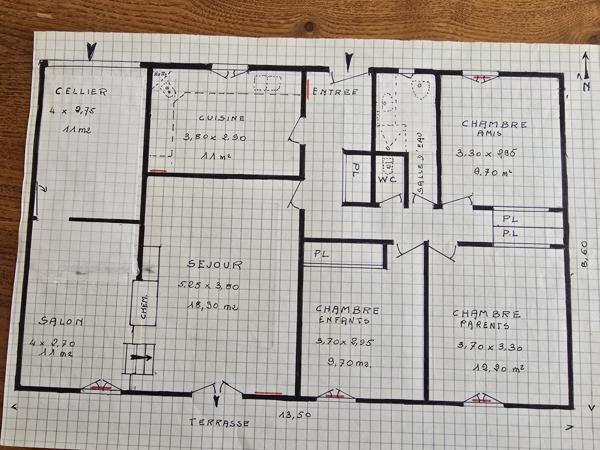 CELLIER
4 x 2,75
11 m2
HOTTE
CUISINE
3,80 x 2,90
11 m²
ENTREE
PL
WC
SALLE D'EAU
CHAMBRE
AMIS
3.30 x 2,95
9,70 m²
N
PL
P.L
8,60
SEJOUR
5.25 x 3,80
18,30 m2
CHEM.
SALON
4 x 2,70
11 m2
PL
CHAMBRE
ENFANTS
3,70 x 2,95
9,70 m2
CHAMBRE
PARENTS
3,70 x 3,30
12,20 m²
TERRASSE
13,50